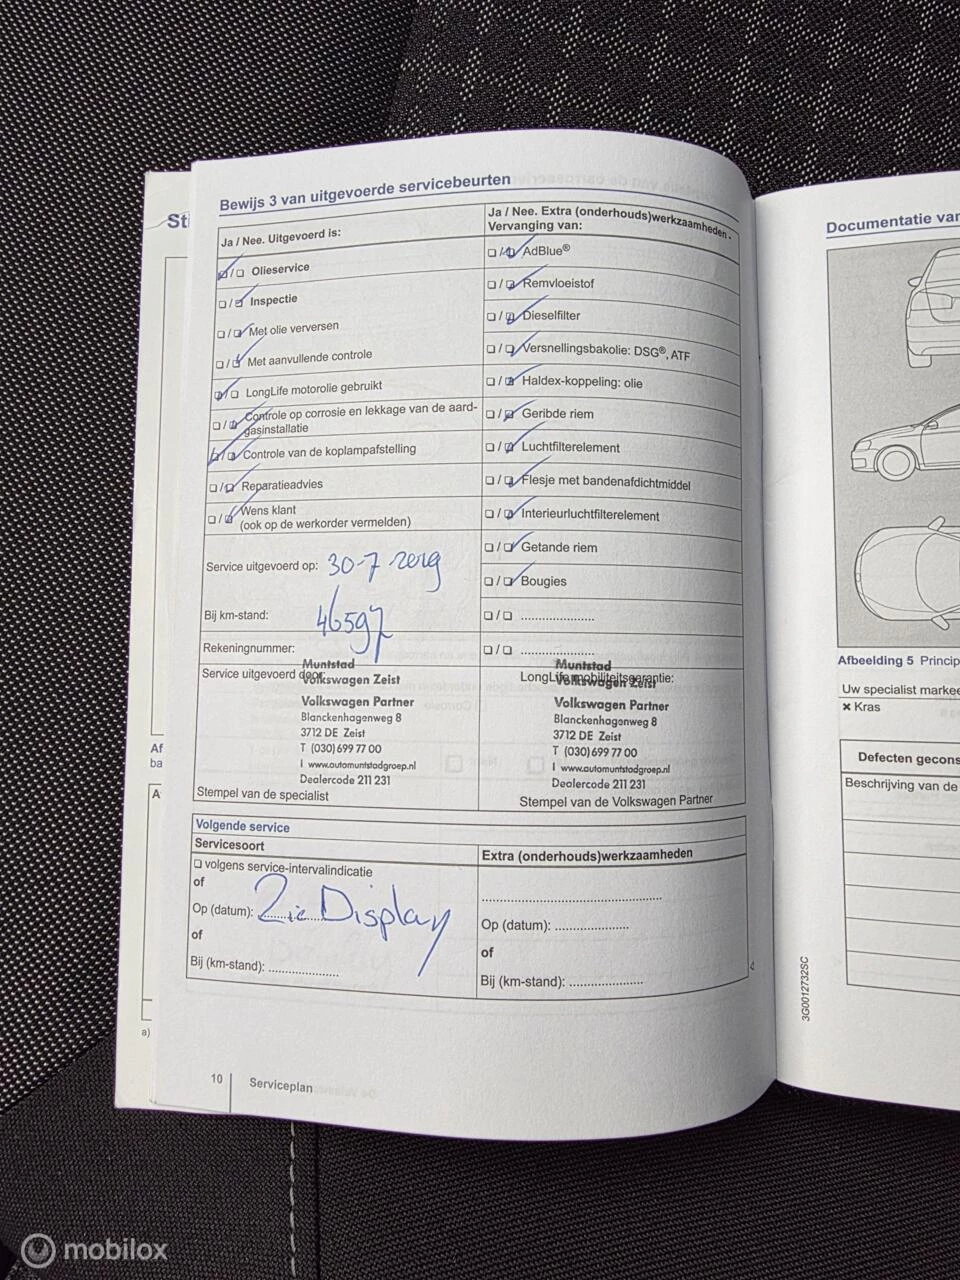 St
Bewijs 3 van uitgevoerde servicebeurten
Ja / Nee. Uitgevoerd is:
Ja / Nee. Extra (onderhouds)werkzaamheden - Vervanging van:
Olieservice
Inspectie
Met olie verversen
Met aanvullende controle
LongLife motorolie gebruikt
Controle op corrosie en lekkage van de aard-
gasinstallatie
Controle van de koplampafstelling
Reparatieadvies
Wens klant
(ook op de werkorder vermelden)
AdBlue®
Remvloeistof
Dieselfilter
Versnellingsbakolie: DSG®, ATF
Haldex-koppeling: olie
Geribde riem
Luchtfilterelement
Flesje met bandenafdichtmiddel
Interieurluchtfilterelement
Getande riem
Bougies
Service uitgevoerd op: 30-7
Bij km-stand: 46597
Rekeningnummer:
Service uitgevoerd door:
Muntstad
Volkswagen Zeist
Volkswagen Partner
Blanckenhagenweg 8
3712 DE Zeist
T (030) 699 77 00
I www.automuntstadgroep.nl
Dealercode 211 231
Stempel van de specialist
LongLife mobiliteitsgarantie:
Muntstad
Volkswagen Zeist
Volkswagen Partner
Blanckenhagenweg 8
3712 DE Zeist
T (030) 699 77 00
I www.automuntstadgroep.nl
Dealercode 211 231
Stempel van de Volkswagen Partner
Volgende service
Servicesoort
volgens service-intervalindicatie
of
Op (datum): Zie Display
of
Bij (km-stand): ....................
Extra (onderhouds)werkzaamheden
Op (datum): ....................
of
Bij (km-stand): ....................
10 Serviceplan
Af
ba
A
a)
Documentatie van
Afbeelding 5 Princip
Uw specialist markee
× Kras
Defecten gecons
Beschrijving van de
3G0012732SC
mobilox